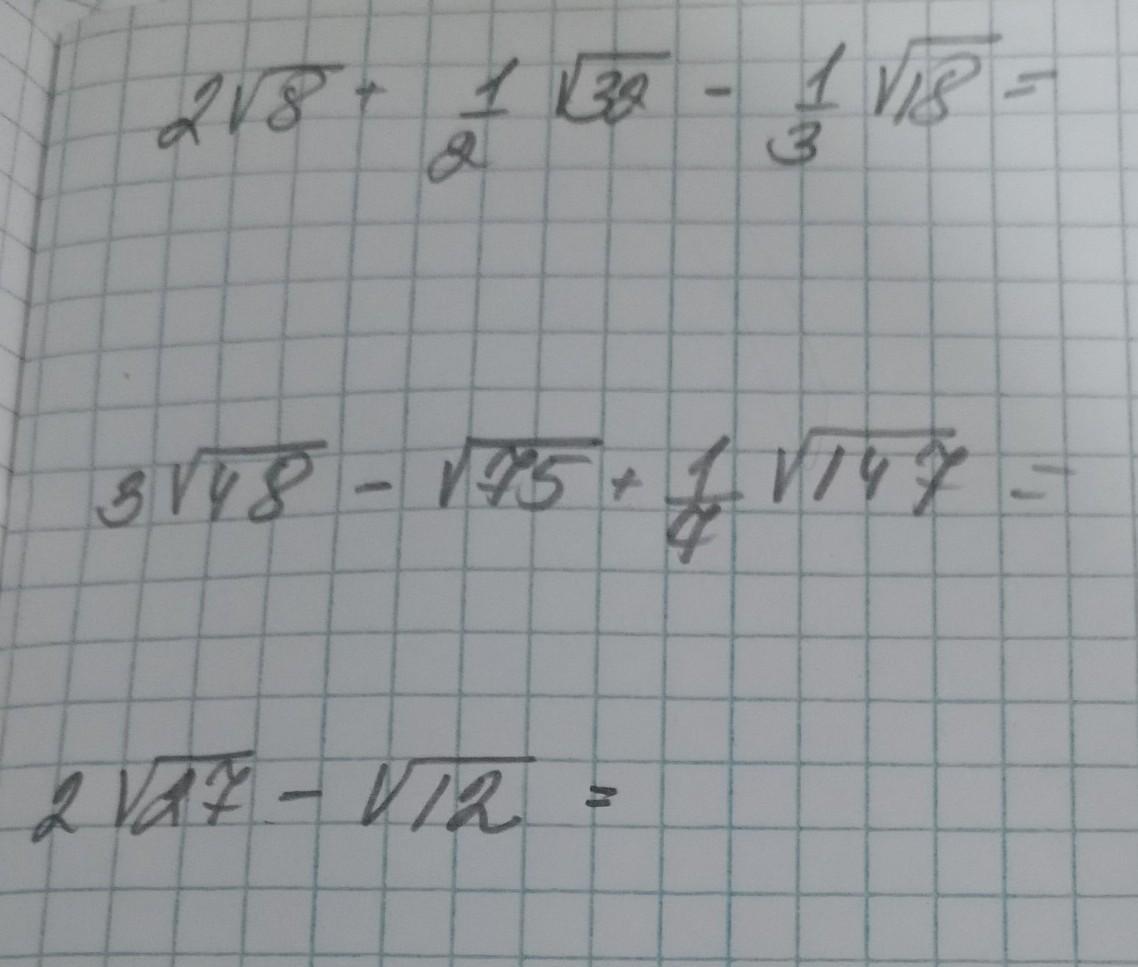 2√8 + 1/2 √32 - 1/3 √18 =
3√48 - √75 + 1/7 √147 =
2√27 - √12 =